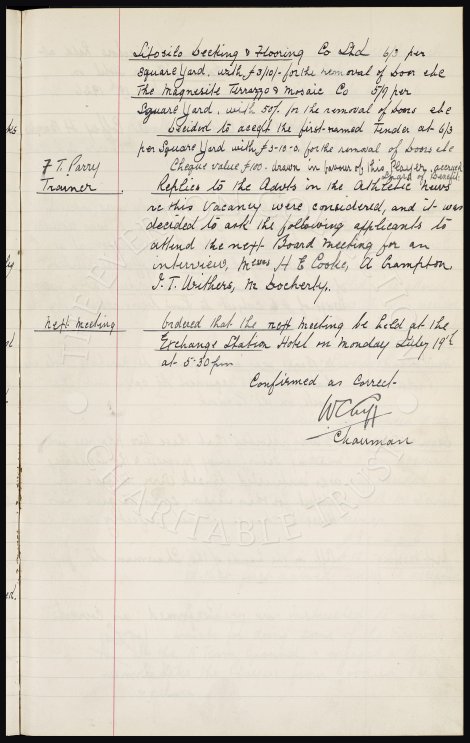 Litosilo Decking & Flooring Co Ltd 6/3 per
square yard. with £3/10/- for the removal of door etc
The Magnesite Terrazzo & Mosaic Co 5/9 per
Square Yard, with 50/- for the removal of doors etc
Decided to accept the first-named Tender at 6/3
per Square Yard with £3-10-0. for the removal of doors etc
F T. Parry
Cheque value £100. drawn in favour of this Player, accrued
share of Benefit.
Trainer
Replies to the Advts in the Athletic News
re this Vacancy were considered, and it was
decided to ask the following applicants to
attend the next Board Meeting for an
interview, Messrs H E Cooke, A Crampton
J. T. Withers, M Docherty.
Next Meeting
Ordered that the next meeting be held at the
Exchange Station Hotel on Monday July 19th
at 5-30pm
Confirmed as Correct-
WCCuff
Chairman
THE EVERTON
CHARITABLE TRUST